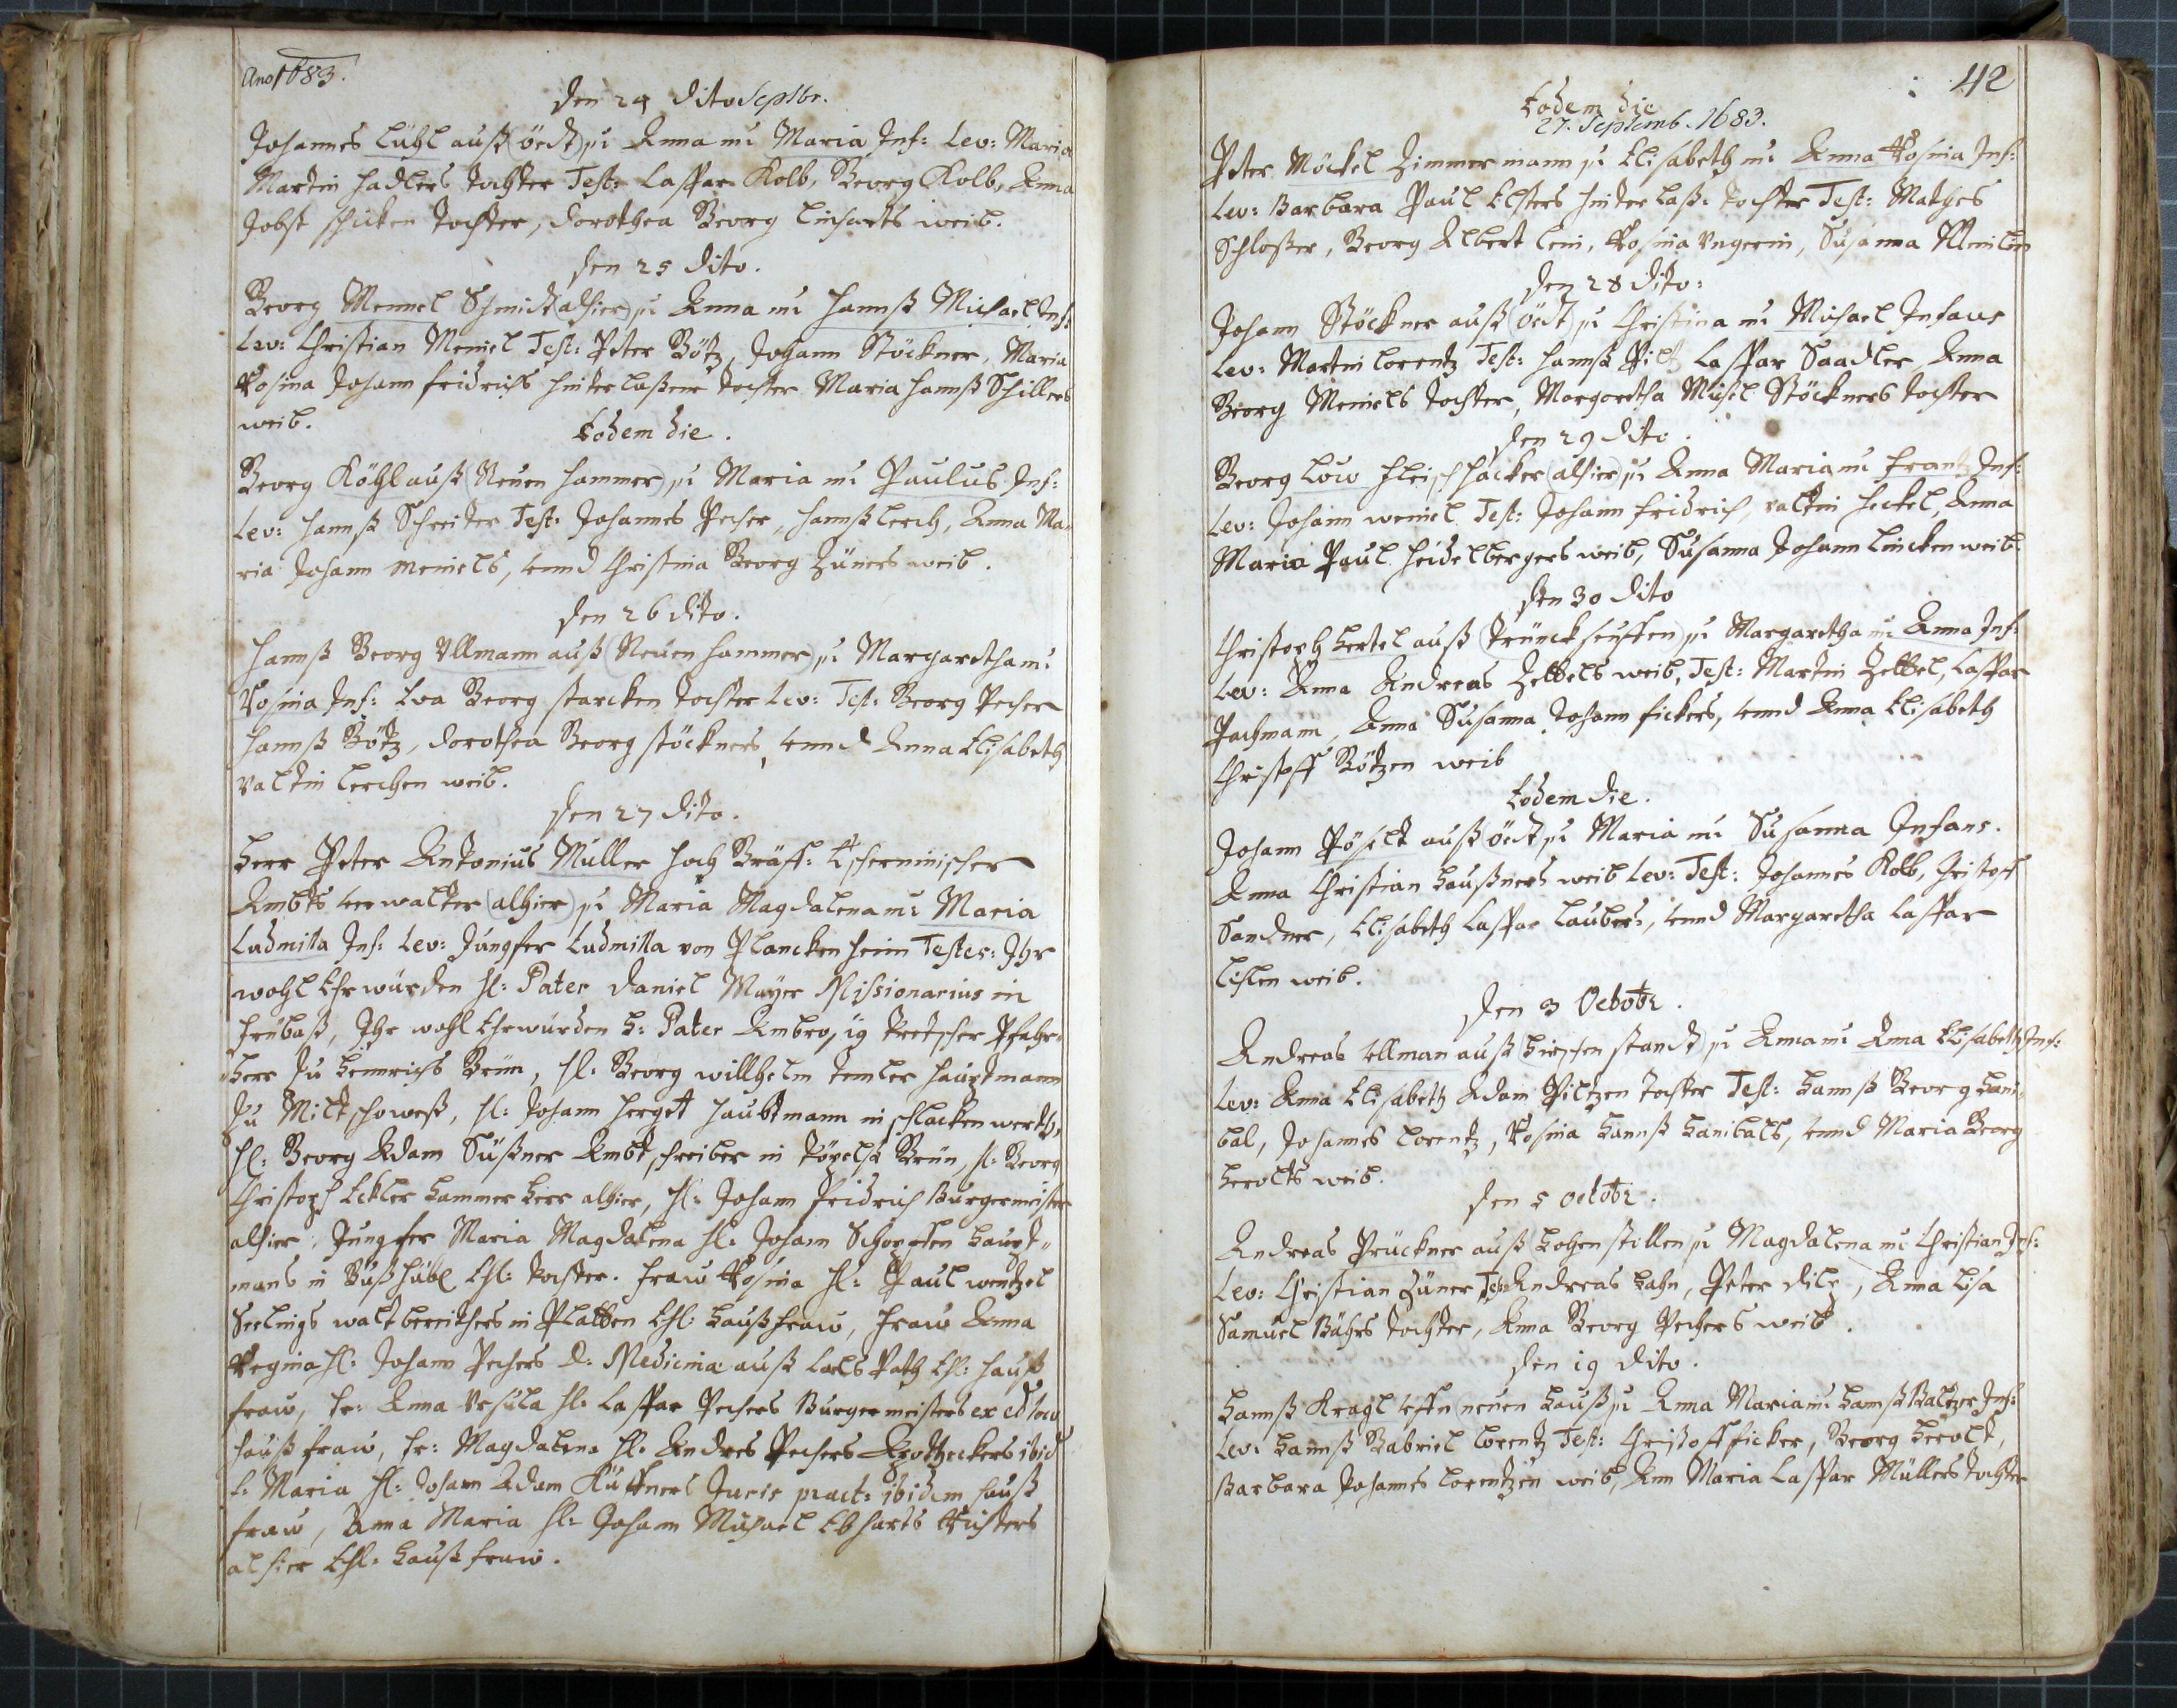 Ano 1683.
den 24 dito Septbr.
Johannes Lühl auß öedt pi Anna mi Maria Inf: Lev: Maria
Martin Hadlers tochter Test: Caspar Kolb, Georg Kolb, Anna
Jobst schicken tochter, Dorothea Georg linharts weib.
den 25 dito.
Georg Meinel Schmidt alhier pi Anna mi Hannß Michael Inf:
Lev: Christian Meinel Test: Peter Götz, Johann Stöckner, Maria
Rosina Johann fridrichs hinterlaßene tochter Maria Hannß Schillers
weib.
Eodem die.
Georg Köhl auß Neuen hammer pi Maria mi Paulus Inf:
Lev: Hannß Schreiter Test: Johannes Pecher, Hannß lerch, Anna Ma-
ria Johann meinels, vnnd Christina Georg Züners weib.
den 26 dito.
Hannß Georg Vllmann auß Neuen hammer pi Margaretha mi
Rosina Inf: Eva Georg starcken tochter Lev: Test: Georg Pecher
Hannß Götz, Dorothea Georg stöckners, vnnd Anna Elisabeth
Valtin lerchen weib.
den 27 dito.
Herr Peter Antonius Müller Hoch Gräff: Tscherninischer
Ambts verwalter alhier pi Maria Magdalena mi Maria
Ludmilla Inf: Lev: Jungfer Ludmilla von Planckenheim Testes: Ihr
wohl Ehrwürden H: Pater Daniel Mayer Missionarius in
Frübaß, Ihr wohl Ehrwürden H: Pater Ambrosig Pfahr-
Herr zu Heinrichs Grün, H: Georg willhelm Haupdtmann
zu Miltschoweß, H: Johann Herget Haubtmann in schlackenwerth,
H: Georg Adam Süßner Ambtschreiber in Töpelß Grün, H: Georg
Christoph Eckler Hammer Herr alhier, H: Johann fridrich Burgermeister
alhier, Jungfer Maria Magdalena H: Johann Haupt-
mans in Gießhübl Ehl: tochter. fraw Rosina H: Paul wentzel
Seelings waltbereithers in Platten Ehl: Haußfraw, fraw Anna
Regina H: Johann Pechers D: Medicina auß Carls Path Ehl: hauß
fraw, fr: Anna Vrsula H: Caspar Pechers Burgermeisters
haußfraw, fr: Magdalena H: Andres Pechers Apotheckers ibid
f: Maria H: Johann Adam Küffners Juris pract: ibidem hauß
fraw, Anna Maria H: Johann Michael Ebharts Richters
alhier Ehl: Haußfraw.
42
Eodem die
27. Septemb. 1683.
Peter Möckel Zimmermann pi Elisabeth mi Anna Rosina Inf:
Lev: Barbara Paul Elsters hinterlaß: tochter Test: Mathes
Schloßer, Georg Albert Rosina Vngerin, Susanna
den 28 dito:
Johann Stöckner auß öedt pi Christina mi Michael Infans
Lev: Martin lorentz Test: Hannß Piltz Caspar Saadler, Anna
Georg Meinels tochter, Margaretha Michl Stöckners tochter
den 29 dito.
Georg Löw fleischhacker alhier pi Anna Maria mi Frantz Inf:
Lev: Johann Test: Johann fridrich, valtin Heckel, Anna
Maria Paul heidelbergers weib, Susanna Johann Lincken weib.
den 30 dito
Christoph Hertel auß Trünckseuffen pi Margaretha mi Anna Inf:
Lev: Anna Andreas Zettels weib, Test: Martin Zettel, Caspar
Pachmann, Anna Susanna Johann fickers, vnnd Anna Elisabeth
Christoff Götzen weib
Eodem die.
Johann Pöhselt auß öedt pi Maria mi Susanna Infans.
Anna Christian Haußners weib Lev: Test: Johannes Kolb, Christoff
Sandner, Elisabeth Caspar Laubers, vnnd Margaretha Caspar
weib.
den 3 Octobr.
Andreas Vllman auß Hirschenstandt pi Anna mi Anna Elisabeth Inf:
Lev: Anna Elisabeth Adam Piltzen tochter Test: Hannß Georg Hani-
bal, Johannes lorentz, Rosina Hannß Hanibals, vnnd Maria Georg
Herolts weib.
den 5 octobr.
Andreas Prückner auß Hohenstillen pi Magdalena mi Christian Inf:
Lev: Christian Züner Test: Andreas Hahn, Peter Anna Lisa
Samuel Bährs tochter, Anna Georg Pechers weib.
den 19 dito.
Hannß Kragl neuen Hauß pi Anna Maria mi Hannß Baltzer Inf:
Lev: Hannß Gabriel lorentz Test: Christoff ficker, Georg Herolt,
Barbara Johannes lorentzen weib, Ann Maria Caspar Müllers tochter